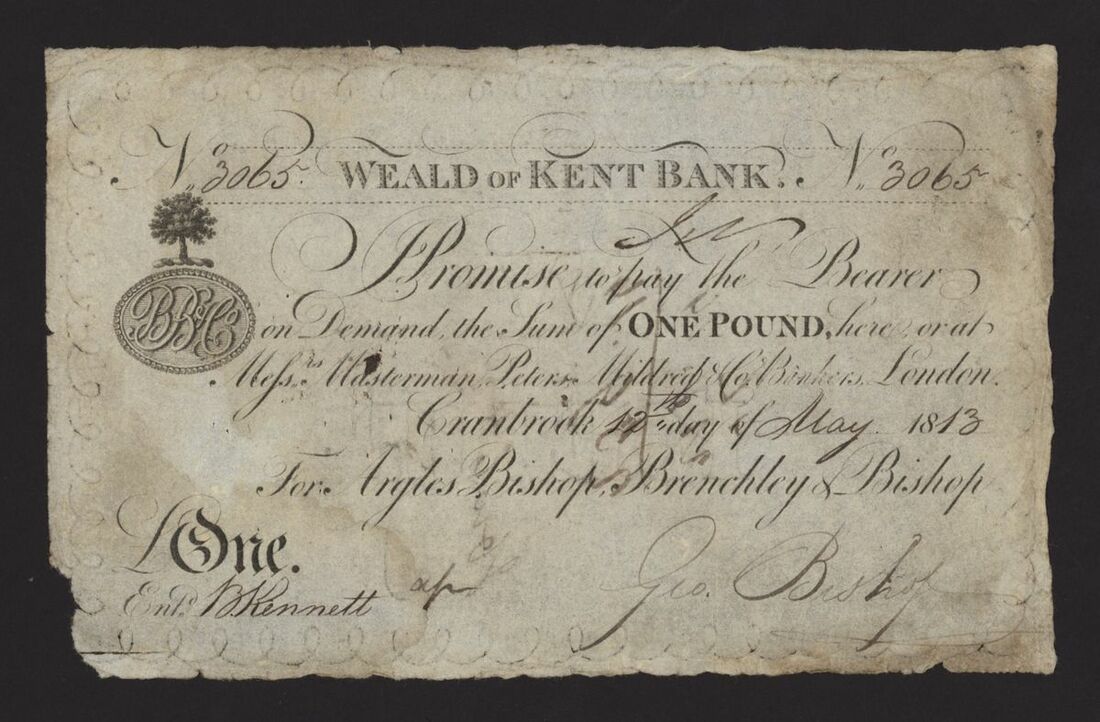 No. 3065. WEALD OF KENT BANK. No. 3065
I Promise to pay the Bearer
on Demand, the Sum of ONE POUND, here, or at
Messrs. Masterman, Peters, Mildred & Co. Bankers, London.
Cranbrook 12th day of May 1813
For Argles Bishop, Brenchley & Bishop
BB&Co
£One.
Entd. B Kennett
Geo. Bishop